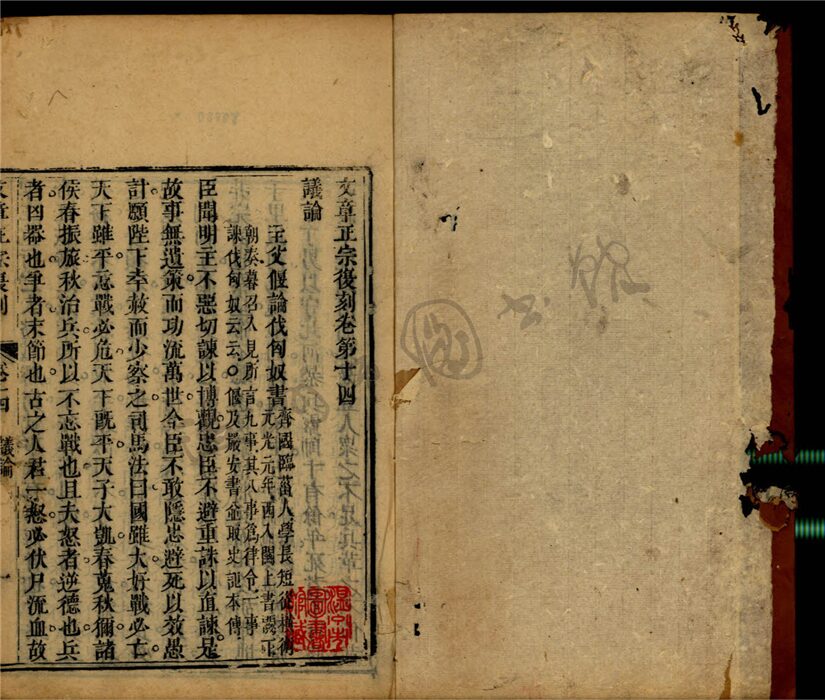 文章正宗復刻卷第十四
議論
主父偃論伐匈奴書
齊國臨菑人學長短從橫術
元光元年西入關上書闕下
朝奏暮召入見所言九事其八事爲律令一事
諫伐匈奴云云○偃及嚴安書並取史記本傳
臣聞明主不惡切諫以博觀忠臣不避重誅以直諫是
故事無遺策而功流萬世今臣不敢隱忠避死以效愚
計願陛下幸赦而少察之司馬法曰國雖大好戰必亡
天下雖平忘戰必危天下既平天子大凱春蒐秋獮諸
侯春振旅秋治兵所以不忘戰也且夫怒者逆德也兵
者凶器也爭者末節也古之人君一怒必伏尸流血故
文章正宗復刻 卷十四 議論 一